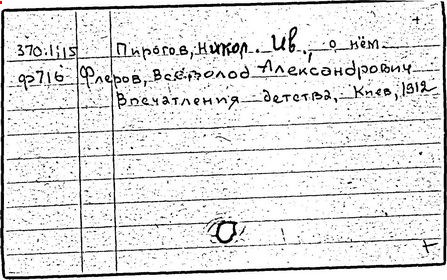 370.1i15 Пирогов, Никол. Ив., о нём
Ф716 Флеров, Всеволод Александрович
Впечатления детства, Киев, 1912